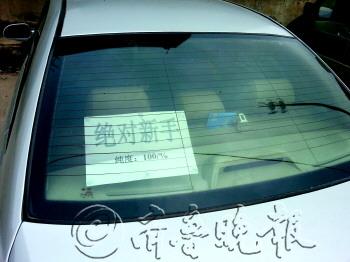 绝对新手
纯度：100%
@齐鲁晚报